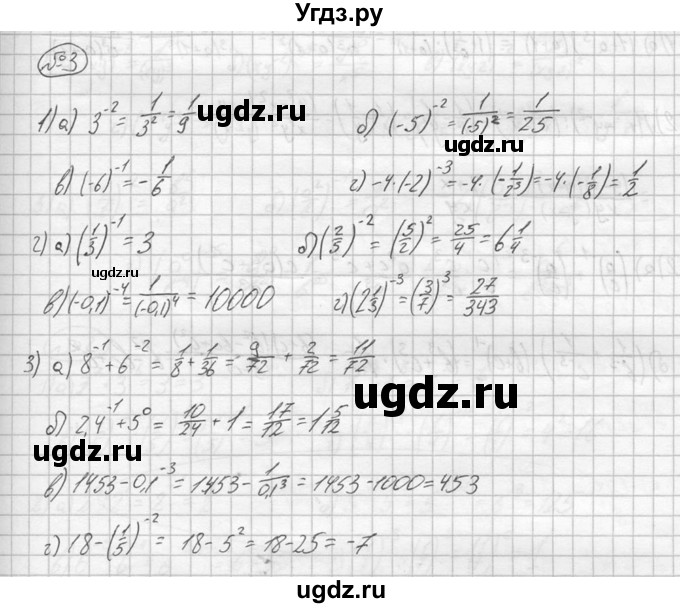 Угдз.ру
№3
1) а) 3^-2 = 1/3^2 = 1/9 б) (-5)^-2 = 1/(-5)^2 = 1/25
ugdz.ru ugdz.ru
в) (-6)^-1 = -1/6 г) -4·(-2)^-3 = -4·(-1/2^3) = -4·(-1/8) = 1/2
2) а) (1/3)^-1 = 3 б) (2/5)^-2 = (5/2)^2 = 25/4 = 6 1/4
ugdz.ru ugdz.ru
в) (-0,1)^-4 = 1/(-0,1)^4 = 10000 г) (2 1/3)^-3 = (3/7)^3 = 27/343
3) а) 8^-1 + 6^-2 = 1/8 + 1/36 = 9/72 + 2/72 = 11/72
ugdz.ru
б) 2,4^-1 + 5^0 = 10/24 + 1 = 17/12 = 1 5/12
ugdz.ru
в) 1453 - 0,1^-3 = 1453 - 1/0,1^3 = 1453 - 1000 = 453
г) 18 - (1/5)^-2 = 18 - 5^2 = 18 - 25 = -7
ugdz.ru ugdz.ru
ugdz.ru